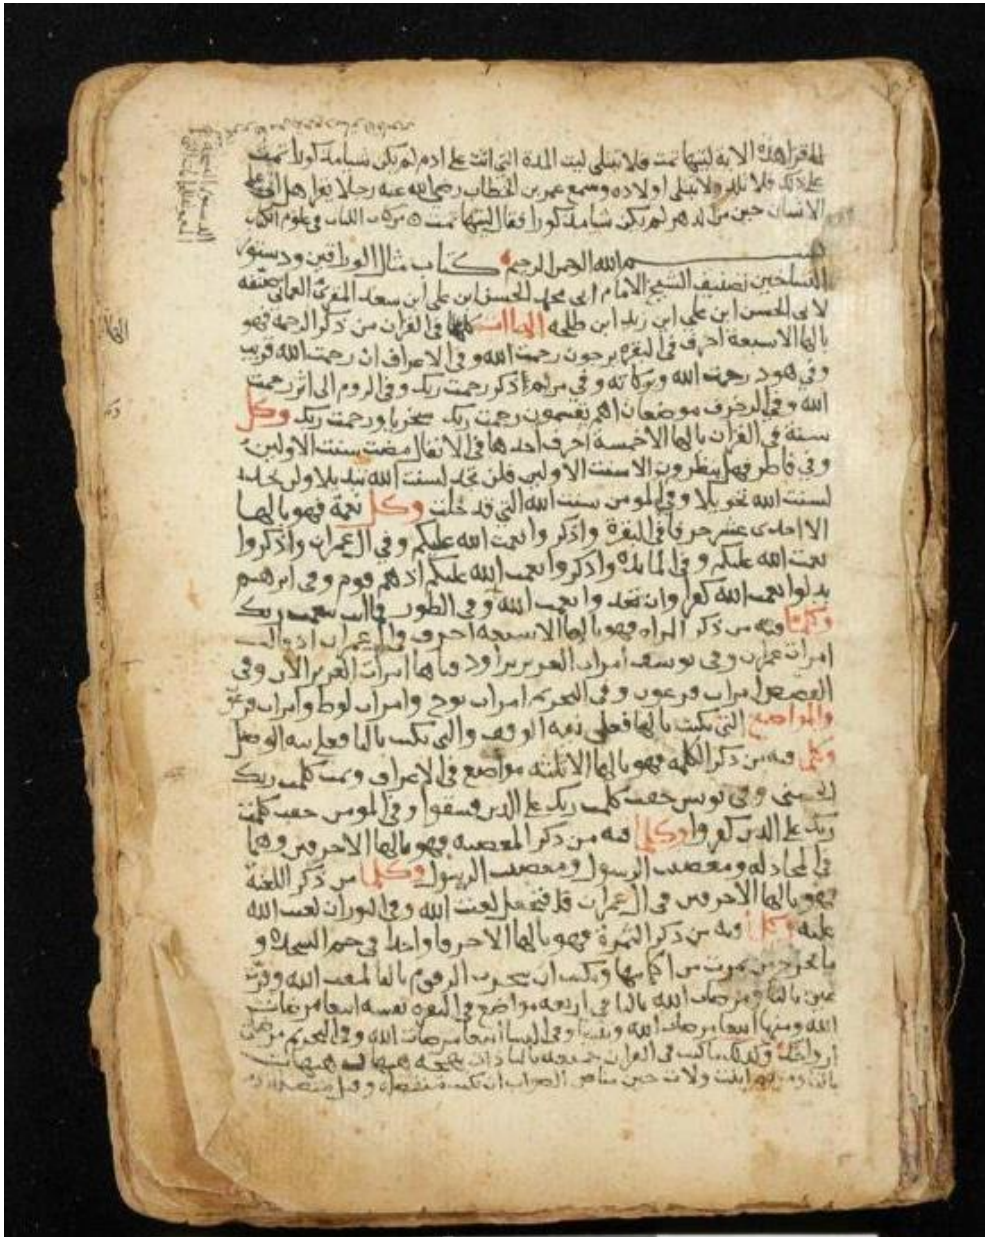 لما قرا هذه الاية ليتها تمت فلا نبتلى ليت المدة التي اتت على ادم لم يكن شيا مذكورا تمت
على ذلك فلا يلد ولا يبتلى اولاده وسمع عمر بن الخطاب رضي الله عنه رجلا يقرا هل اتى على
الانسان حين من الدهر لم يكن شيا مذكورا فقال ليتها تمت من كتاب اللباب في علوم الكتاب
بسم الله الرحمن الرحيم كتاب مثال الوراقين ودستور
النساخين تصنيف الشيخ الامام ابي محمد الحسن ابن علي ابن سعد المقرئ العماني صنفه
لابي الحسن ابن علي ابن زيد ابن طلحه الهاات كلها في القران من ذكر الرحمه فهو
بالها الا سبعة احرف في البقره يرجون رحمت الله وفي الاعراف ان رحمت الله قريب
وفي هود رحمت الله وبركاته وفي مريم ذكر رحمت ربك وفي الروم الى اثر رحمت
الله وفي الزخرف موضعان اهم يقسمون رحمت ربك سخريا ورحمت ربك وكل
سنة في القران بالها الا خمسة احرف احدها في الانفال مضت سنت الاولين
وفي فاطر فهل ينظرون الا سنت الاولين فلن تجد لسنت الله تبديلا ولن تجد
لسنت الله تحويلا وفي المومن سنت الله التي قد خلت وكل نعمة فهو بالها
الا احدى عشر حرفا في البقرة واذكروا نعمت الله عليكم وفي ال عمران واذكروا
نعمت الله عليكم وفي المايده واذكروا نعمت الله عليكم اذ هم قوم وفي ابرهيم
بدلوا نعمت الله كفرا وان تعدوا نعمت الله وفي الطور فما انت بنعمت ربك
وكلما فيه من ذكر المراه فهو بالها الا سبعه احرف في ال عمران اذ قالت
امرات عمران وفي يوسف امرات العزيز تراود فتاها امرات العزيز الان وفي
القصص امرات فرعون وفي التحريم امرات نوح وامرات لوط وامرات فرعون
والمواضع التي تكتب بالها فعلى نية الوقف والتي تكتب بالتا فعلى نية الوصل
وكلما فيه من ذكر الكلمه فهو بالها الا ثلثه مواضع في الاعراف وتمت كلمت ربك
الحسنى وفي يونس حقت كلمت ربك على الذين فسقوا وفي المومن حقت كلمت
ربك على الذين كفروا وكلما فيه من ذكر المعصيه فهو بالها الا حرفين وهما
في المجادله ومعصيت الرسول ومعصيت الرسول وكلما من ذكر اللعنة
فهو بالها الا حرفين في ال عمران فنجعل لعنت الله وفي النور ان لعنت الله
عليه وكلما فيه من ذكر الثمرة فهو بالها الا حرفا واحدا في حم السجده و
ما تخرج من ثمرت من اكمامها ويكتب ان شجرت الزقوم بالتا بقيت الله وقرت
عين بالتا ومرضات الله بالتا في اربعه مواضع في البقره نفسه ابتغا مرضات
الله ومنها ابتغا مرضات الله وتثبيتا وفي النسا ابتغا مرضات الله وفي التحريم مرضات
ازواجك وكذلك ما كتب في القران جميعه بالتا ذات بهجه هيهات هيهات
ولات حين مناص الصواب ان تكتب منفصله وقيل متصله